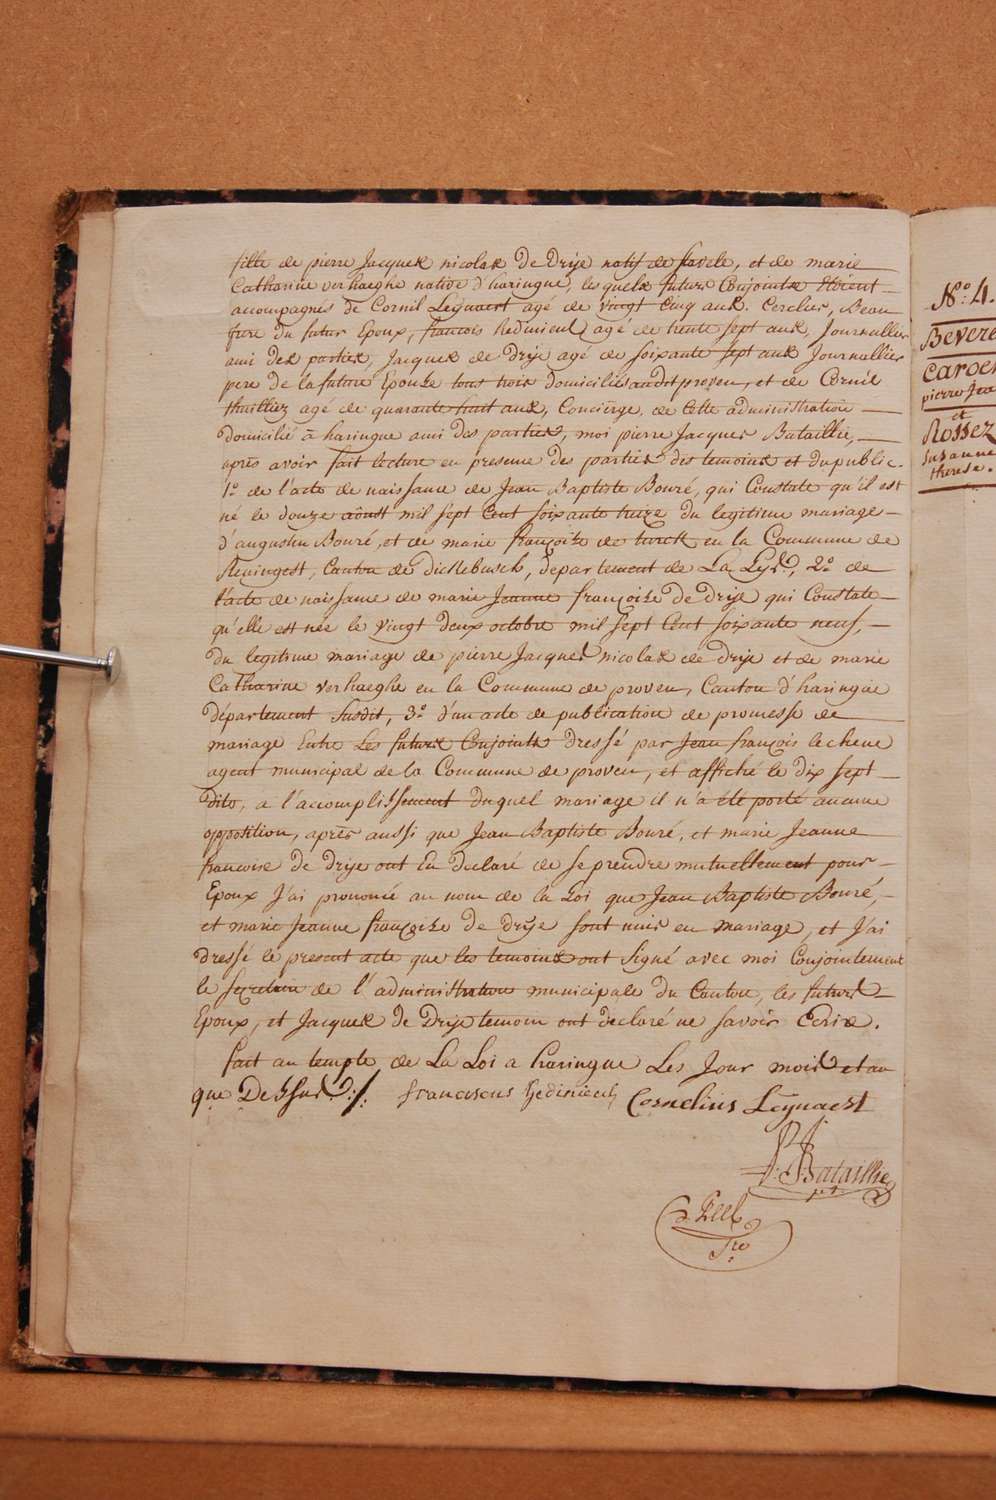 fille de pierre Jacques nicolas De Drije natif de flavele, et de marie
Catharine verhaeghe native d'haringue, lesquels futurs Conjoints étoient
accompagnés de Cornil Leynaert agé de vingt Cinq ans. Cerclier, Beau
frere du futur Epoux, francois hedinieul agé de trente sept ans, Journallier
ami des parties, Jacques de Drije agé de soixante sept ans Journallier
pere de la future Epouse tous trois domiciliés audit proven, et de Cornil
thuilliez agé de quarante huit ans, Concièrge, de Cette administration
domicilié à haringue ami des parties, moi pierre Jacques Bataillie,
après avoir fait lecture en presence des parties des temoins et du public.
1.º de l'acte de naissance de Jean Baptiste Bouré, qui Constate qu'il est
né le douze aôust mil sept Cent soixante treize du legitime mariage
d'augustin Bouré, et de marie françoise de turck en la Commune de
Reningest, Canton de Dickebusch, departement de La Lys, 2.º de
l'acte de naissance de marie Jeanne françoise De Drije qui Constate
qu'elle est née le vingt deux octobre mil sept Cent soixante neuf,
du legitime mariage de pierre Jacques nicolas de Drije et de marie
Catharine verhaeghe en la Commune de proven, Canton d'haringue
département susdit, 3.º d'un acte de publication de promesse de
mariage Entre Les futurs Conjoints dressé par Jean françois lechene
agent municipal de la Commune de proven, et affiché le dix sept
dito, a l'accomplissement duquel mariage il n'a été porté aucune
opposition, après aussi que Jean Baptiste Bouré, et marie Jeanne
francoise de Drije ont Eu declaré de se prendre mutuellement pour
Epoux J'ai prononcé au nom de la Loi que Jean Baptiste Bouré,
et marie Jeanne françoise De Drije sont unis en mariage, et J'ai
dressé le present acte que les temoins ont signé avec moi Conjointement
le secretaire de l'administration municipale du Canton, les futurs
Epoux, et Jacques de Drije temoin ont declaré ne savoir Ecrire.
fait au temple de La Loi a haringue Les Jour mois et an
que Dessus ./.
franciscus hedinieul Cornelius Leynaert
P: J: Bataillie
pt
Sre
Nº: 4.
Bevere
Caroen
pierre Jea
et
Rossez
Susanne
therese.